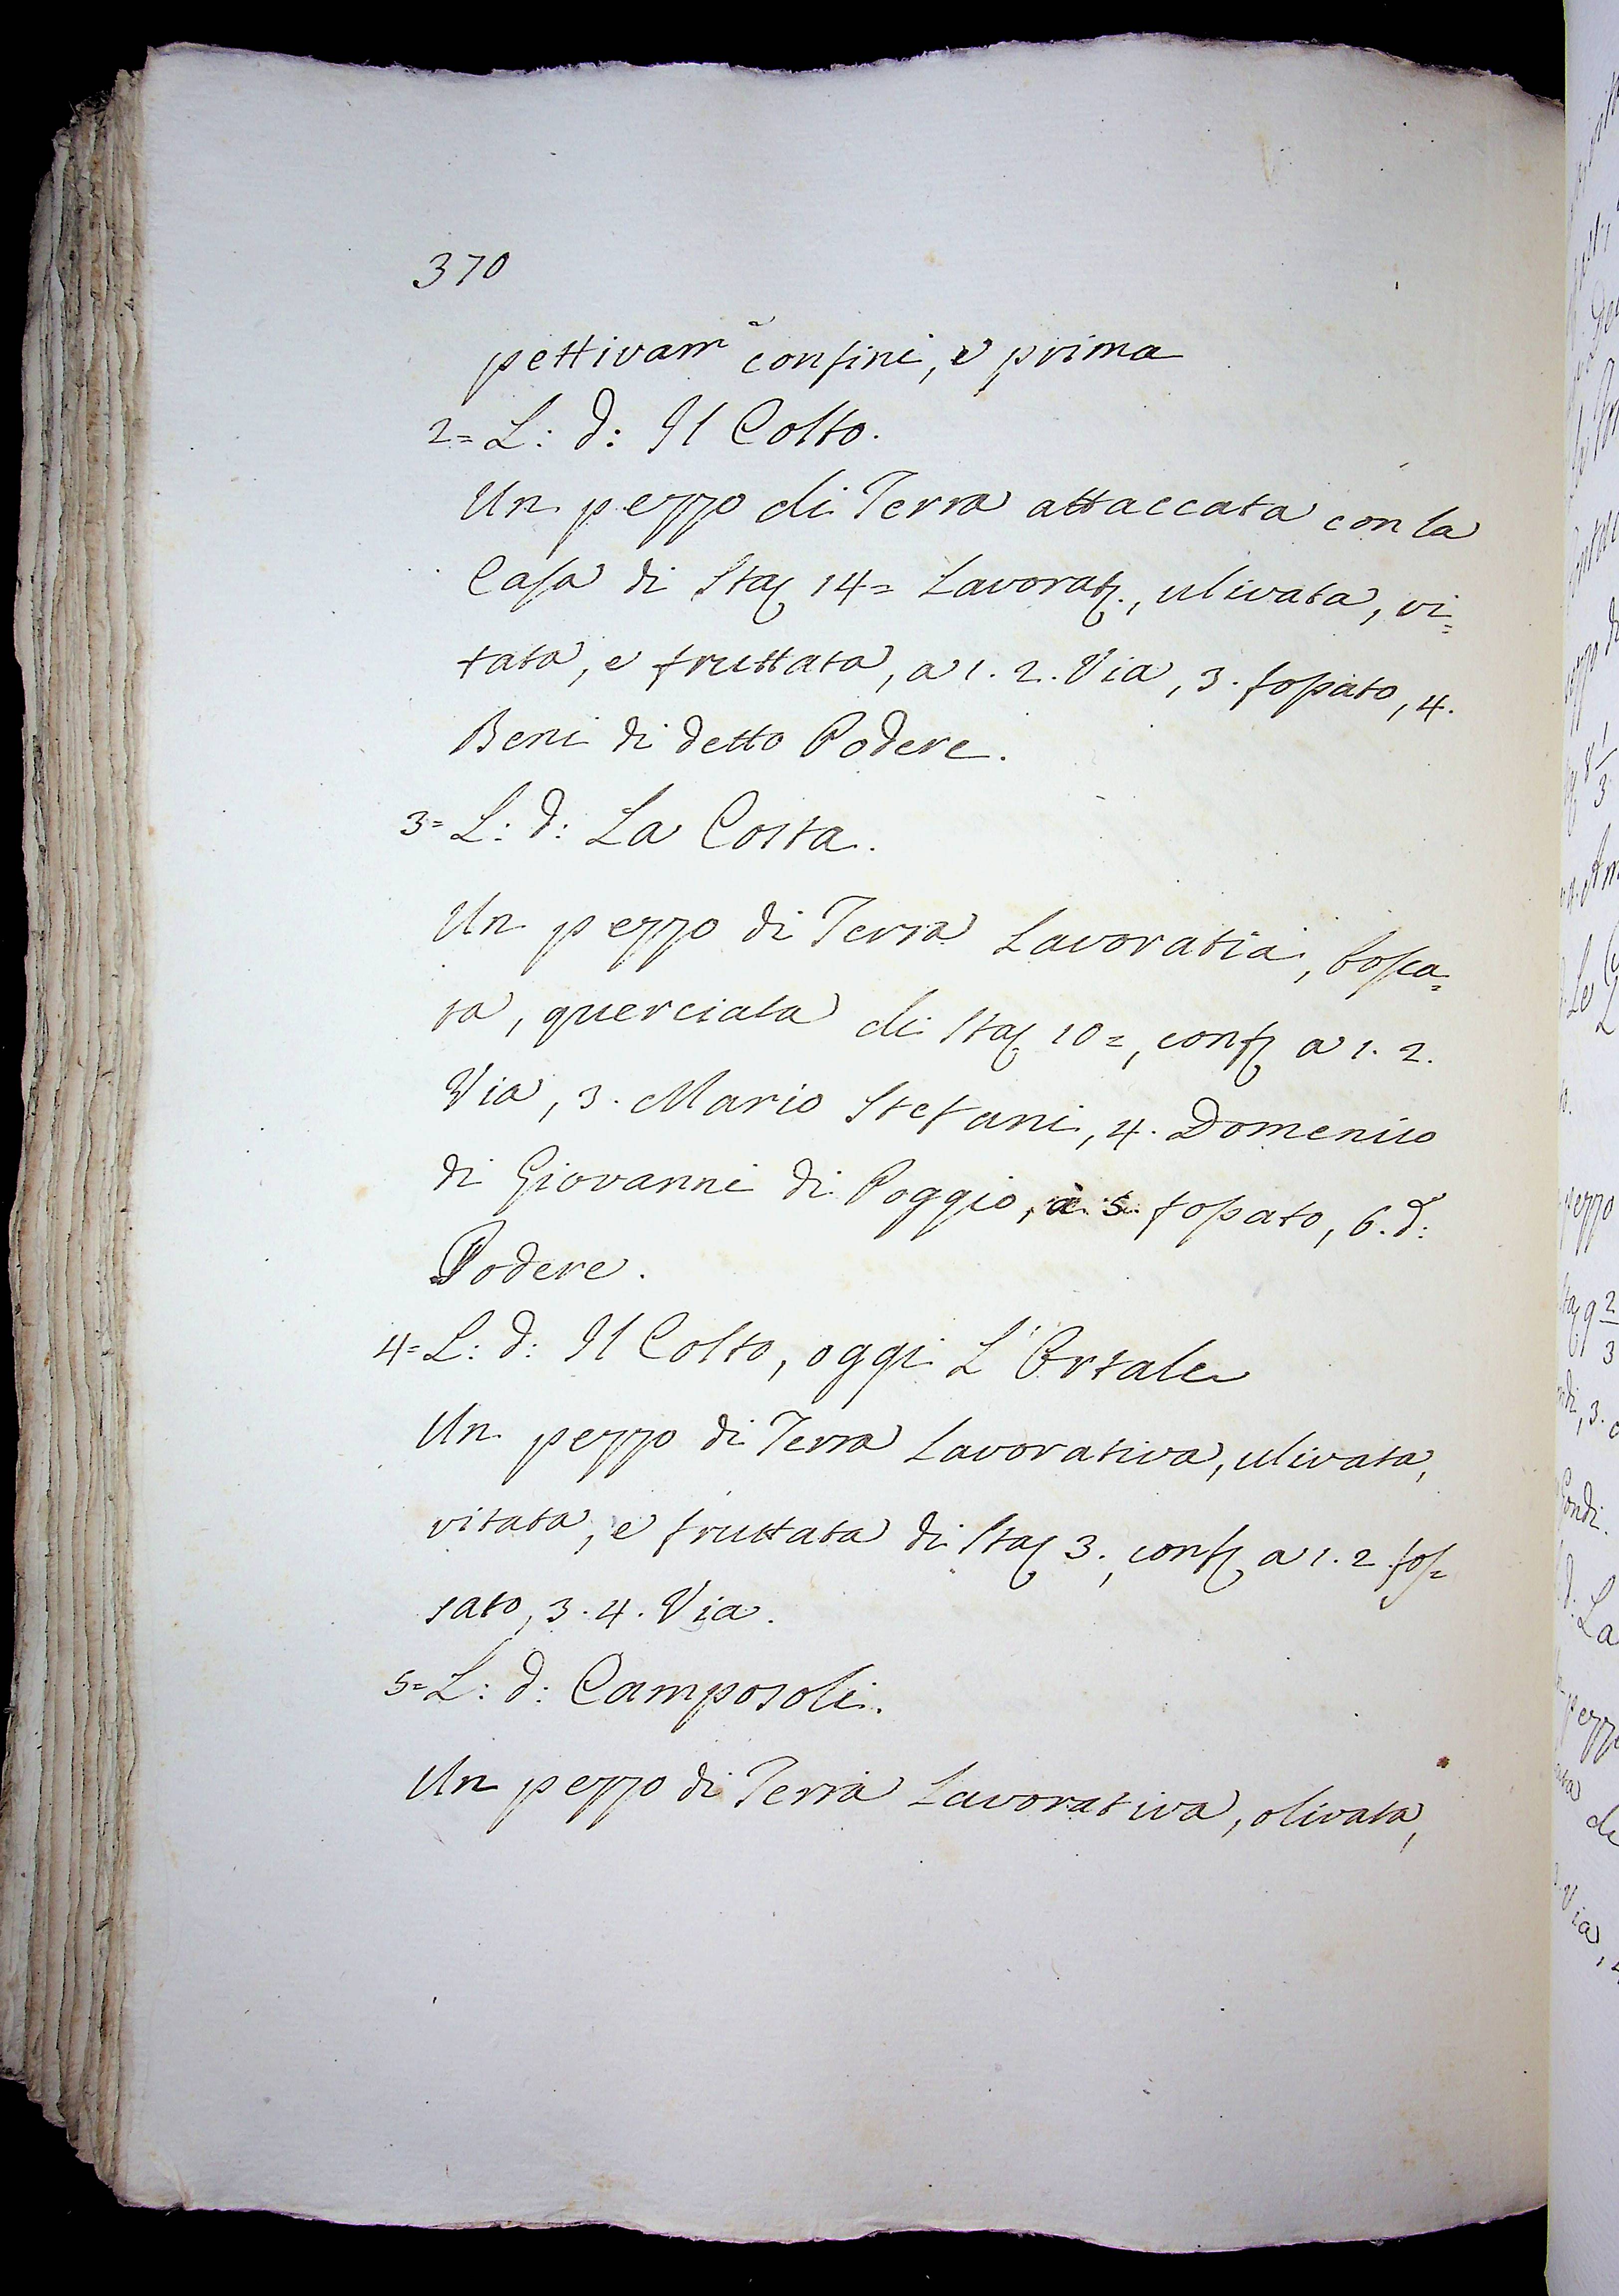 370
pettivam̃ confini, e prima
2= L: d: Il Colto.
Un pezzo di Terra attaccata con la
Casa di Sta 14= Lavorat., ulivata, vi=
tata, e fruttata, a 1. 2. Via, 3. fossato, 4.
Beni di detto Podere.
3= L: d: La Costa.
Un pezzo di Terra Lavoratia, bosca=
ta, querciata di Sta 10=, conf a 1. 2.
Via, 3. Mario Stefani, 4. Domenico
di Giovanni di Poggio, a 5. fossato, 6. d:
Podere.
4= L: d: Il Colto, oggi L'Ortale
Un pezzo di Terra Lavorativa, ulivata,
vitata, e fruttata di Sta 3., conf a 1. 2. fos=
sato, 3. 4. Via.
5= L: d: Camposoli.
Un pezzo di Terra Lavorativa, olivata,